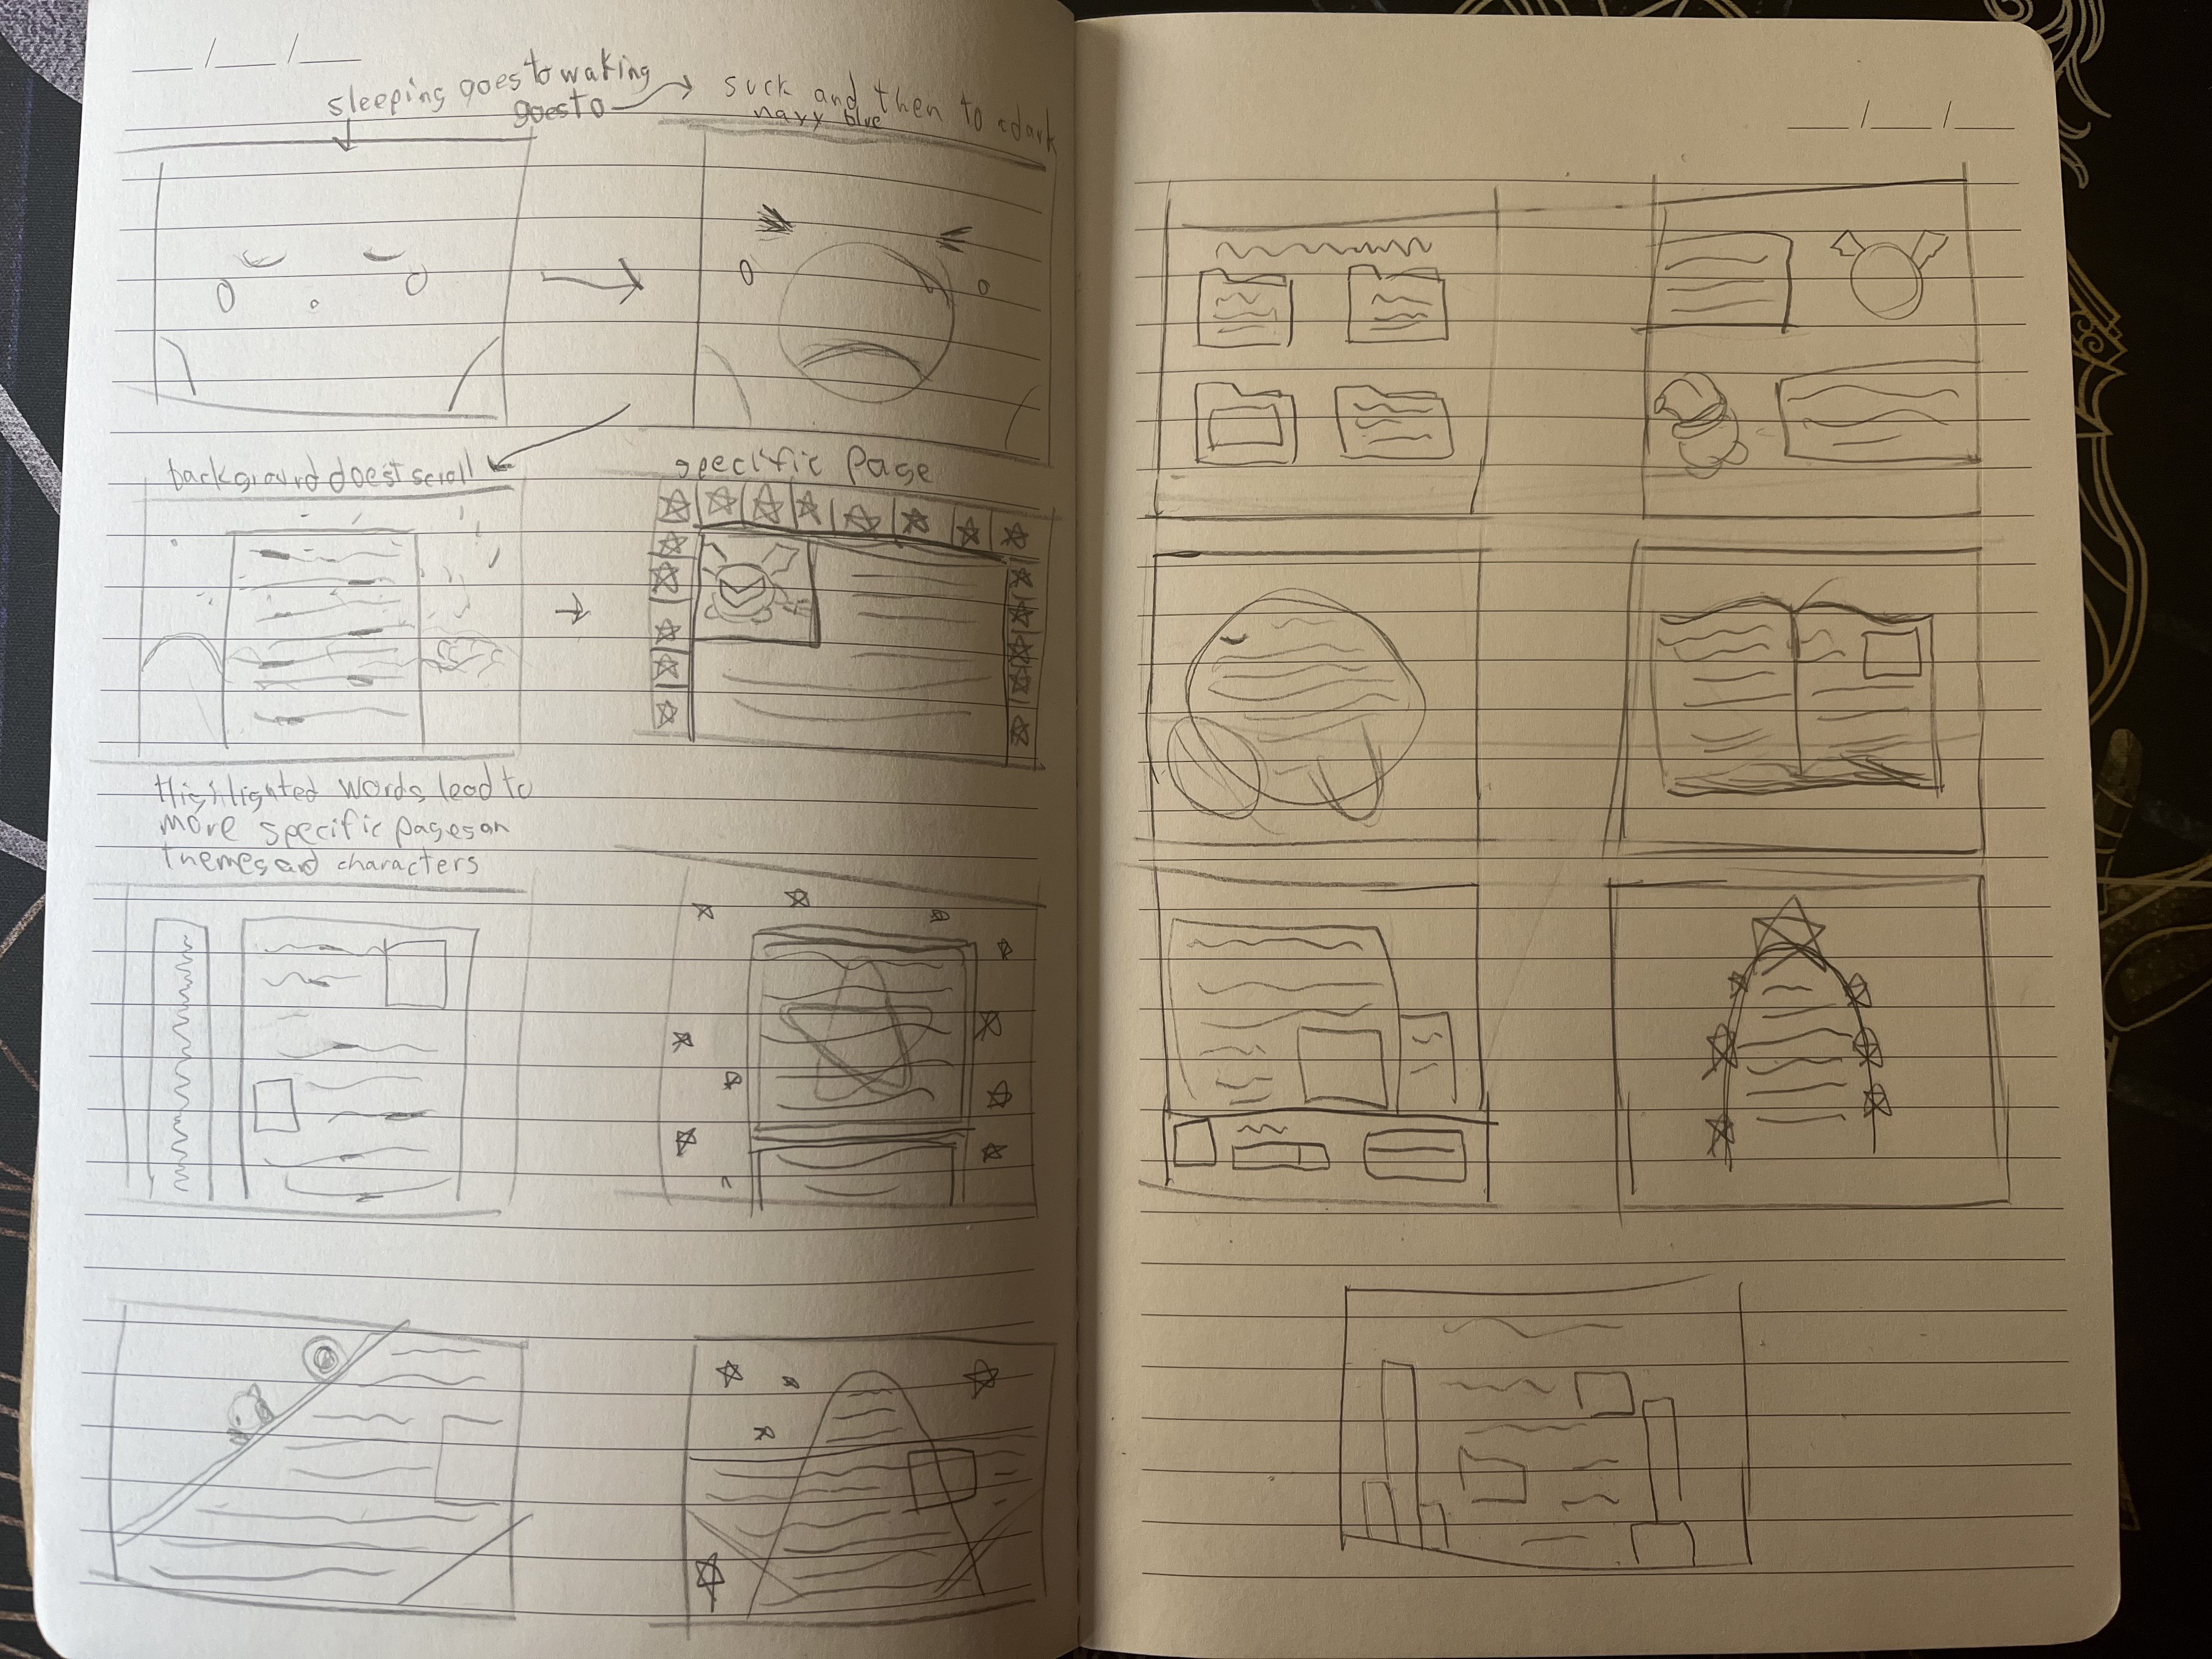 __/__/__
sleeping goes to waking
goes to → suck and then to a dark
navy blue
background does't scroll
specific page
Highlighted words lead to
more specific pages on
themes and characters
__/__/__